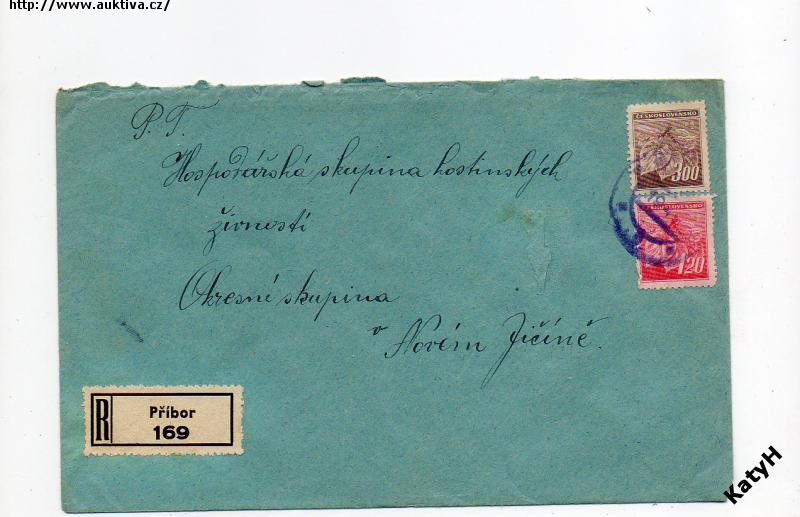 http://www.auktiva.cz/
P. T.
Hospodářská skupina hostinských
živností
Okresné skupina
v Novém Jičíně.
ČESKOSLOVENSKO
300
ČESKOSLOVENSKO
1·20
R
Příbor
169
KatyH